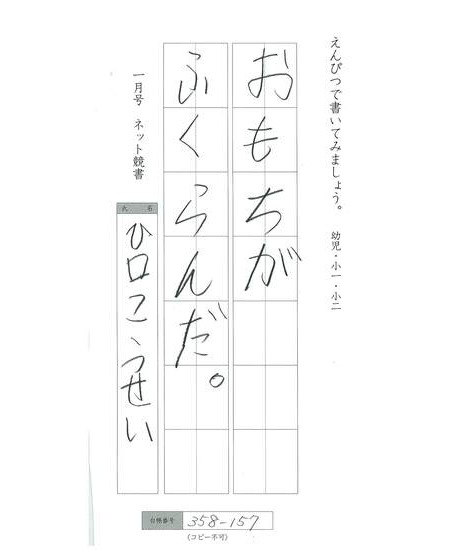 えんぴつで書いてみましょう。 幼児・小一・小二
おもちが
ふくらんだ。
一月号 ネット競書
氏名
ひ口こうせい
台帳番号 358-157
(コピー不可)